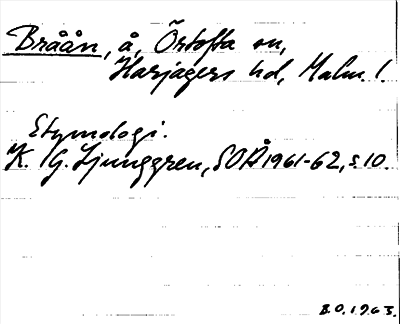 Bråån, å, Örtofta sn,
Harjagers hd, Malm. l.
Etymologi.
K. G. Ljunggren, SOÅ 1961-62, s. 10.
B.O. 1963.